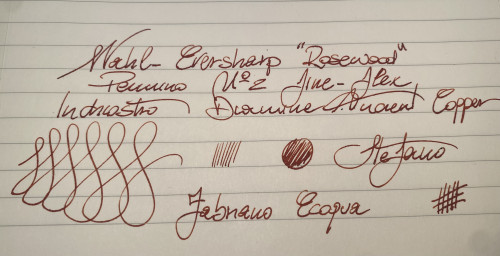 Wahl-Eversharp "Rosewood"
Pennino Nº2 Fine-Flex
Inchiostro Diamine Ancient Copper
Stefano
Fabriano Ecoqua